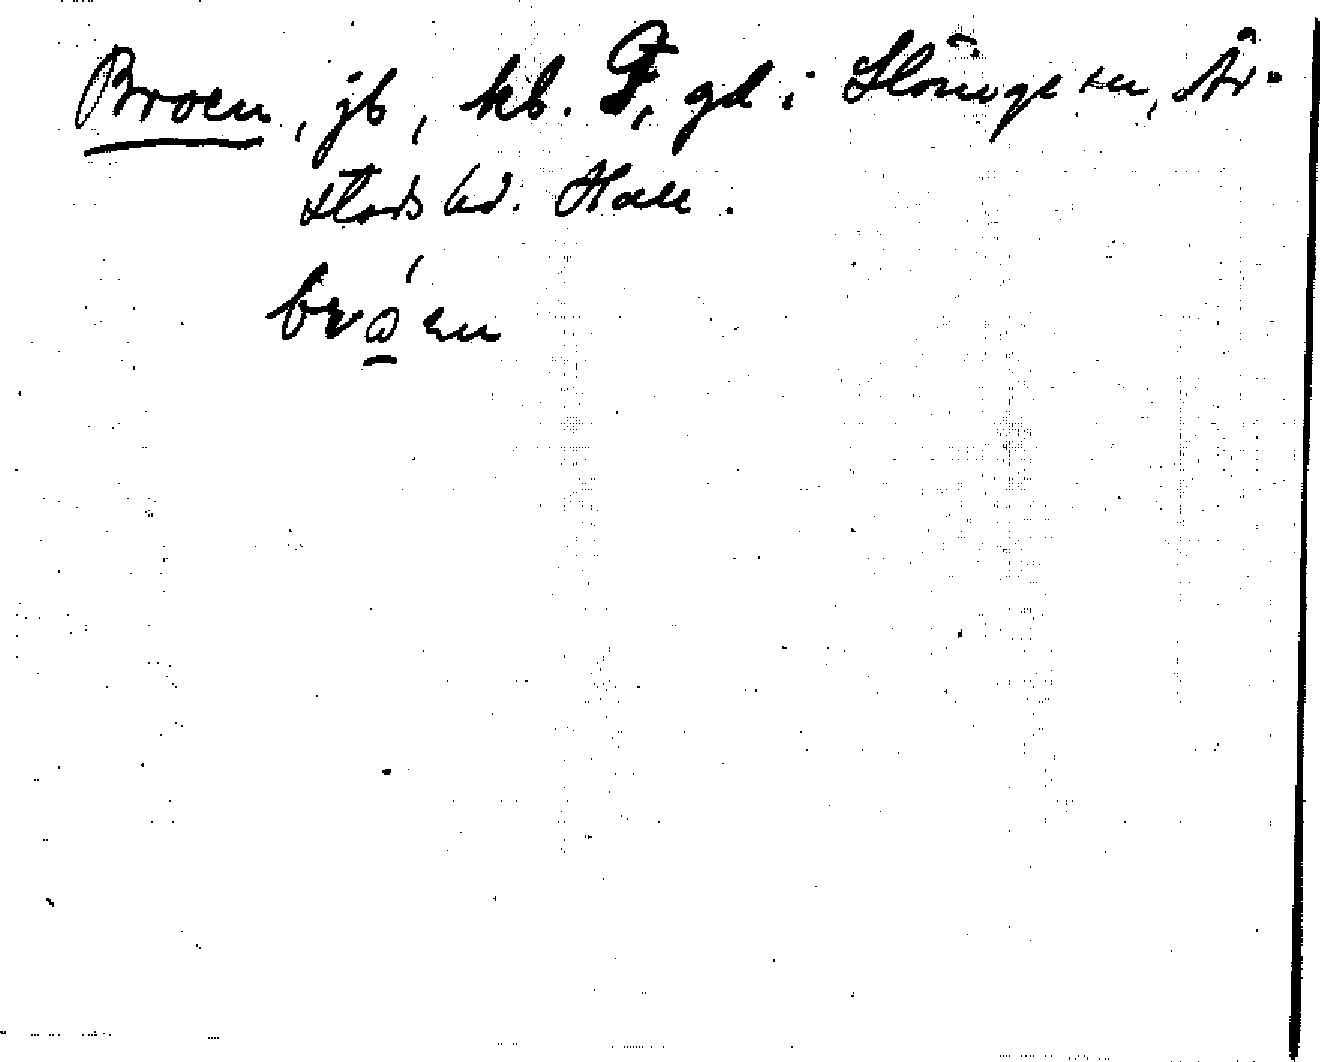 Broen, jb, kb. F, gd i Slöinge sn, År-
stads hd. Hall.
bro´en